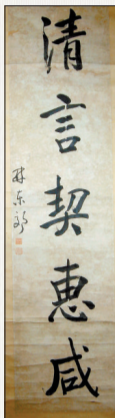 清言契惠咸
林东郊